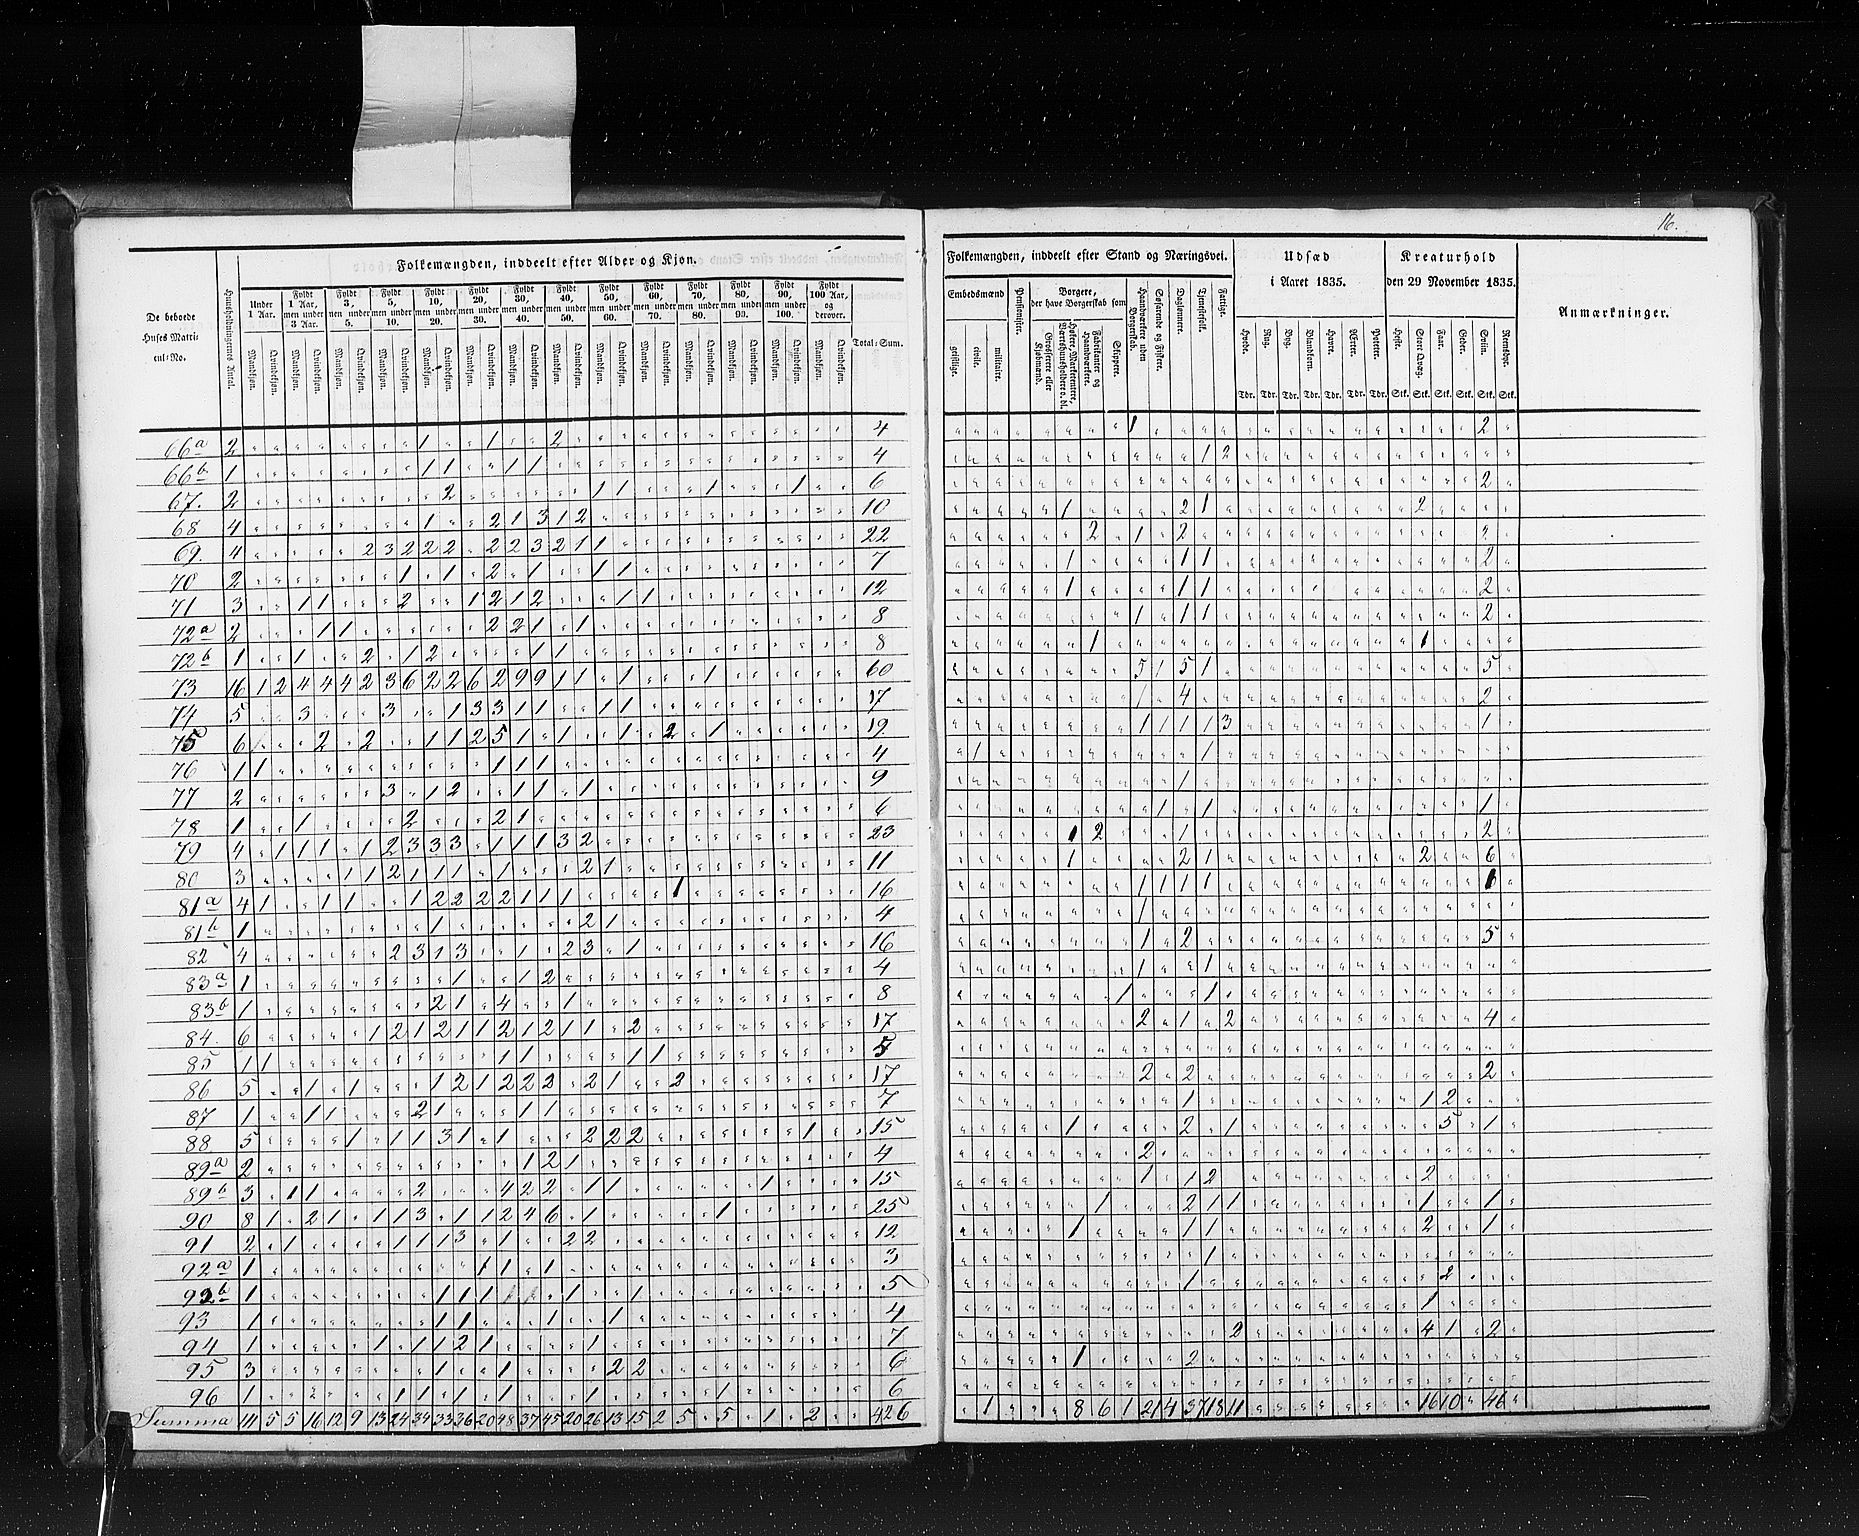 16.
Folkemængden, inddeelt efter Alder og Kjøn.
De beboede Huses Matricul-No.
Huusholdningernes Antal.
Under 1 Aar.
Fyldt 1 Aar, men under 3 Aar.
Fyldt 3, men under 5.
Fyldt 5, men under 10.
Fyldt 10, men under 20.
Fyldt 20, men under 30.
Fyldt 30, men under 40.
Fyldt 40, men under 50.
Fyldt 50, men under 60.
Fyldt 60, men under 70.
Fyldt 70, men under 80.
Fyldt 80, men under 90.
Fyldt 90, men under 100.
Fyldt 100 Aar, og derover.
Mandkjøn. Qvindekjøn.
Total-Sum.
66a 2 1 1 2 4
66b 1 1 1 1 1 4
67. 2 2 1 1 1 1 6
68 4 1 2 1 3 1 2 10
69. 4 2 3 2 2 2 2 2 3 2 1 1 22
70 2 1 1 2 1 1 1 7
71 3 1 1 2 1 2 1 2 1 1 12
72a 2 1 1 2 2 1 1 8
72b 1 1 2 1 2 1 1 8
73 16 1 2 4 4 4 2 3 6 2 2 6 2 9 9 1 1 1 1 60
74 5 3 3 1 3 3 1 1 1 1 17
75 6 2 2 1 1 2 5 1 1 1 2 1 19
76 1 1 1 1 1 4
77 2 3 1 2 1 1 1 9
78 1 1 2 2 1 6
79 4 1 1 1 1 2 3 3 3 1 1 1 3 2 23
80 3 1 1 2 1 1 1 1 2 1 11
81a 4 1 1 1 1 2 2 2 2 1 1 1 1 16
81b 1 1 2 1 4
82 4 2 3 1 3 1 2 3 1 16
83a 1 1 1 2 4
83b 1 2 1 4 1 8
84. 6 1 2 1 2 1 1 2 1 2 1 1 2 17
85 1 1 1 1 1 1 5
86 5 1 1 1 2 1 2 2 2 2 1 2 17
87 1 1 1 2 1 1 1 7
88 5 1 1 1 3 1 1 2 2 2 1 15
89a 2 1 2 1 4
89b 3 1 1 2 4 2 2 1 1 1 15
90 8 1 2 1 1 1 3 1 1 2 4 6 1 1 25
91 2 1 1 1 1 3 1 2 2 12
92a 1 1 1 1 3
92b 1 1 1 1 1 1 5
93 1 1 1 1 1 4
94 1 1 1 1 2 1 1 7
95 3 1 1 2 2 6
96 1 1 1 1 1 1 1 6
Summa 111 5 5 16 12 9 13 24 34 33 36 20 48 37 45 20 26 13 15 2 5 5 1 2 426
Folkemængden, inddeelt efter Stand og Næringsvei.
Embedsmænd
geistlige.
civile.
militaire.
Pensionister.
Borgere, der have Borgerskab som
Grosserere eller Kjøbmænd.
Høkere, Marketentere, Værtshuusholdere o. dl.
Fabrikanter og Haandværkere.
Skippere.
Haandværkere uden Borgerskab.
Søfarende og Fiskere.
Daglønnere.
Tjenestefolk.
Fattige.
Udsæd i Aaret 1835.
Hvede. Tdr.
Rug. Tdr.
Byg. Tdr.
Blandkorn. Tdr.
Havre. Tdr.
Ærter. Tdr.
Poteter. Tdr.
Kreaturhold den 29 November 1835.
Heste. Stk.
Stort Qvæg. Stk.
Faar. Stk.
Geder. Stk.
Sviin. Stk.
Rensdyr. Stk.
Anmærkninger.
1 2
1 2
2
1 2 1 2
2 1 2 2
1 1 1 2
1 1 1 2
1 1 1 2
1 1
5 1 5 1 5
1 4 2
1 1 1 1 3 1
1 1
1
1 1 1
1 2 1 2
1 2 1 2 6
1 1 1 1 6
1
1 2 5
1 1
1 1
2 1 2 4
2 2 2
1 1 2
1 2 1 5 1
2
1 1 2 2
1 2 1 1 1 1
1 1 1 2 1
1
1 2
1
2 4 1 2
1 2
1 8 6 1 21 4 37 18 11 16 10 46